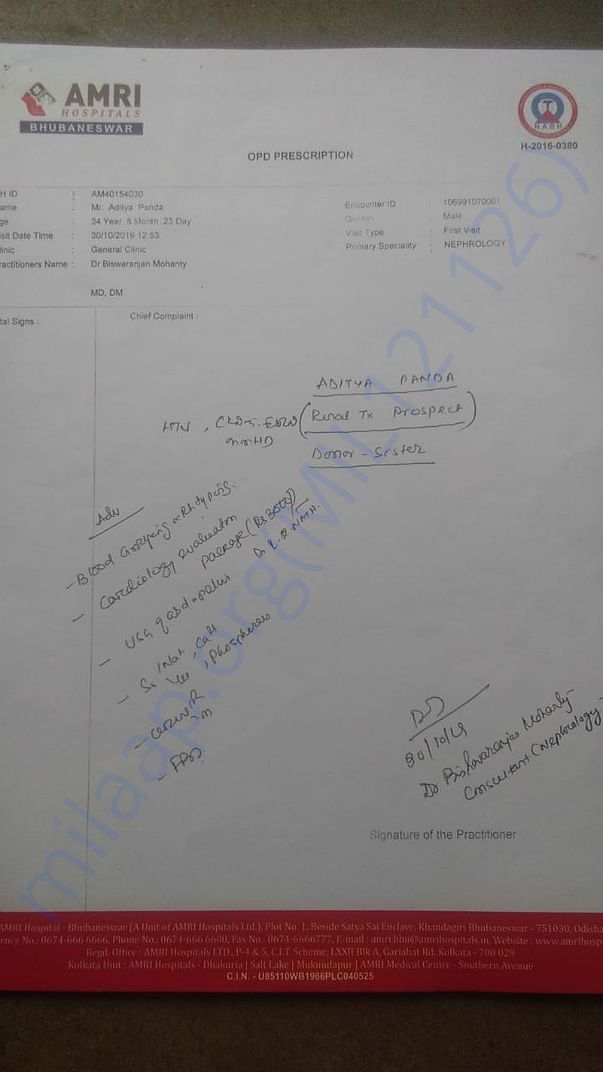 AMRI
HOSPITALS
BHUBANESWAR
NABH
H-2016-0380
OPD PRESCRIPTION
H ID : AM40154030
ame : Mr. Aditya Panda
ge : 34 Year 6 Month 23 Day
isit Date Time : 30/10/2019 12:53
linic : General Clinic
ractitioners Name : Dr Biswaranjan Mohanty
Encounter ID : 106991070001
Gender : Male
Visit Type : First Visit
Primary Speciality : NEPHROLOGY
MD, DM
tal Signs :
Chief Complaint :
ADITYA PANDA
HTN, CKD-5-ESRD (Renal Tx Prospect)
on MHD
Donor - Sister
Adv
- Blood Grouping & Rh typing.
- Cardiology evaluation
package (Rs 3000/-)
- USG of abd + pelvis
- Sr Na+, Ca2+
, Phosphorus
30/10/19
Dr Biswaranjan Mohanty
Consultant (Nephrology)
Signature of the Practitioner
AMRI Hospital - Bhubaneswar (A Unit of AMRI Hospitals Ltd.), Plot No. 1, Beside Satya Sai Enclave, Khandagiri Bhubaneswar - 751030, Odisha
ency No.: 0674-666 6666, Phone No.: 0674-666 6600, Fax No.: 0674-6666777, E-mail : amri.bhu@amrihospitals.in, Website : www.amrihosp
Regd. Office : AMRI Hospitals LTD., P-4 & 5, C.I.T. Scheme, LXXII Blk A, Gariahat Rd. Kolkata - 700 029
Kolkata Unit : AMRI Hospitals - Dhakuria | Salt Lake | Mukundapur | AMRI Medical Centre - Southern Avenue
C.I.N. - U85110WB1986PLC040525
milaap.org(MIL121126)